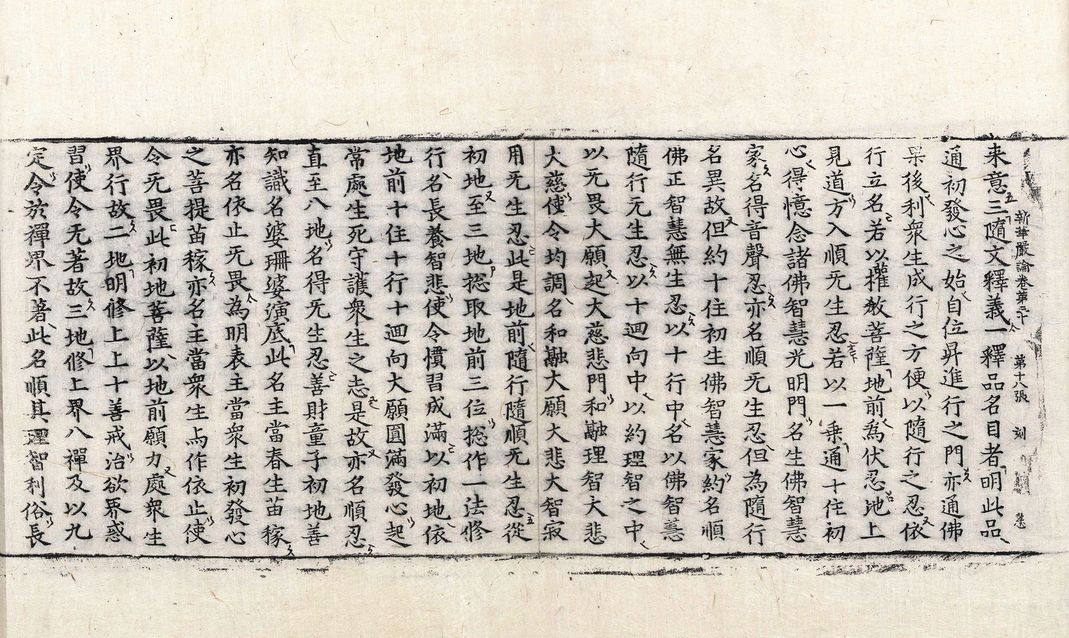 来意三隨文釋義一釋品名目者明此品
新華嚴論卷第三十 第十八張 刻
通初發心之始自位昇進行之門亦通佛
果後利衆生成行之方便以隨行之忍依
行立名若以權教菩薩地前為伏忍地上
見道方入順无生忍若以一乘通十住初
心得憶念諸佛智慧光明門名生佛智慧
家名得音聲忍亦名順无生忍但為隨行
名異故但約十住初生佛智慧家約名順
佛正智慧無生忍以十行中名以佛智慧
隨行无生忍以十迴向中以約理智之中
以无畏大願起大慈悲門和融理智大悲
大慈使令均調名和融大願大悲大智寂
用无生忍此是地前隨行隨順无生忍從
初地至三地捴取地前三位捴作一法修
行名長養智悲使令慣習成滿以初地依
地前十住十行十迴向大願圓滿發心起
常處生死守護衆生之志是故亦名順忍
直至八地名得无生忍善財童子初地善
知識名婆珊婆演底此名主當春生苗稼
亦名依止无畏為明表主當衆生初發心
之菩提苗稼亦名主當衆生与作依止使
令无畏此初地菩薩以地前願力處衆生
界行故二地明修上上十善戒治欲界惑
習使令无著故三地修上界八禪及以九
定令於禪界不著此名順其理智利俗長